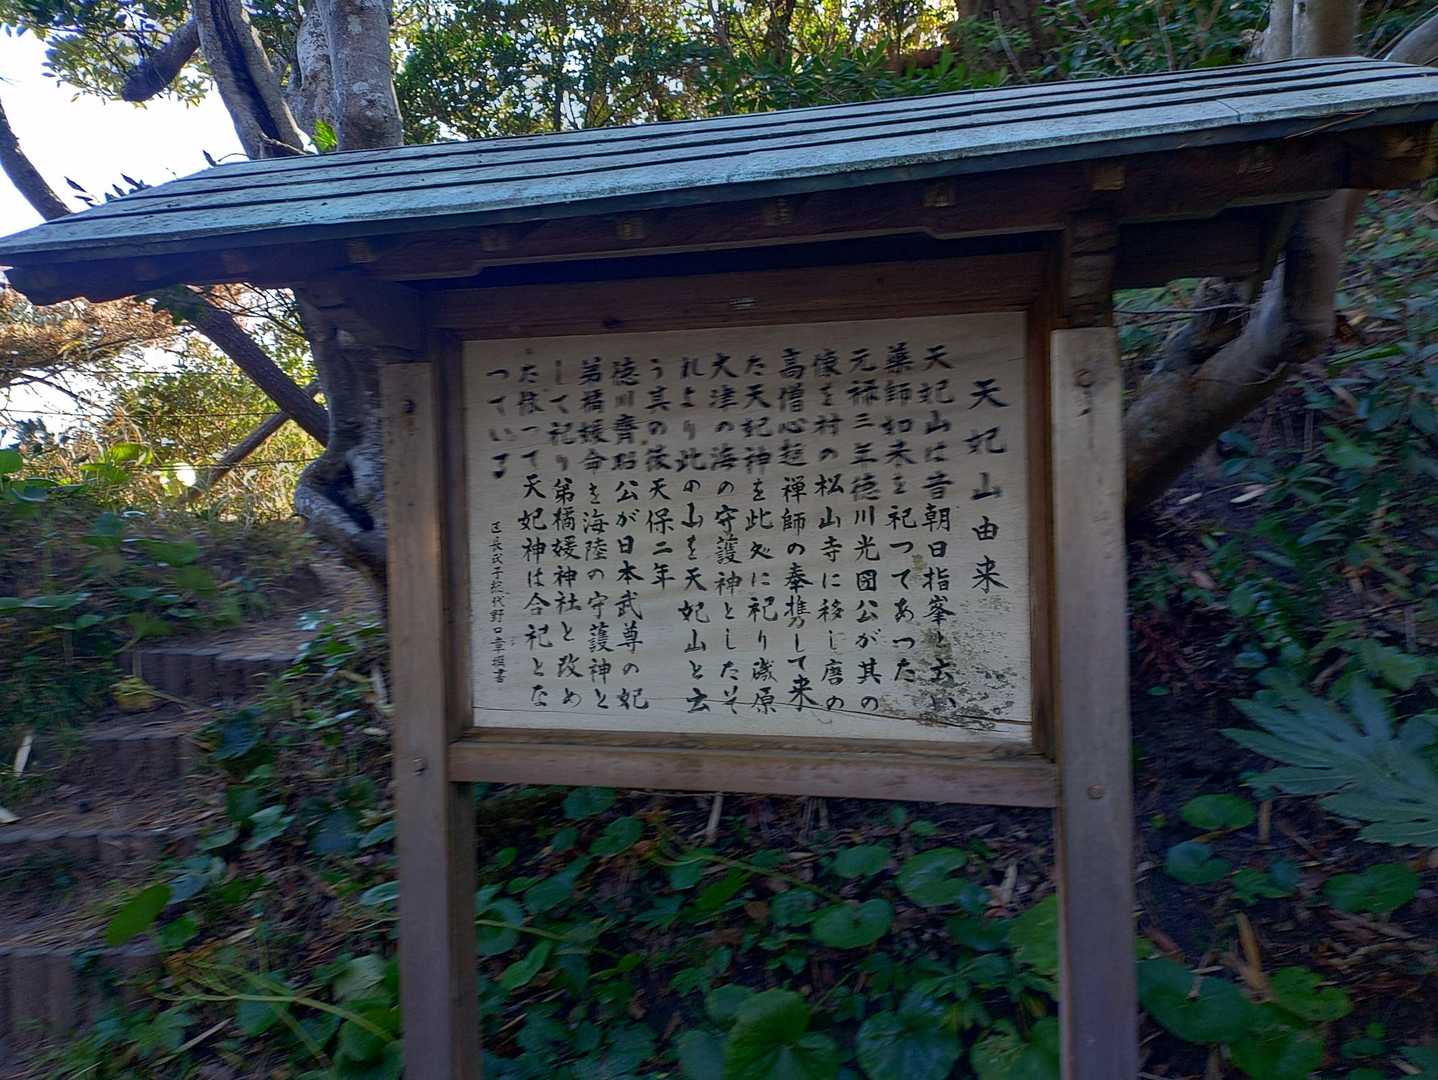 天妃山由来
天妃山は昔朝日指峯と云い
薬師如来を祀つてあつた
元禄三年徳川光圀公が其の
像を村の松山寺に移し唐の
高僧心越禅師の奉携して来
た天妃神を此処に祀り磯原
大津の海の守護神としたそ
れより此の山を天妃山と云
う其の後天保二年
徳川齊昭公が日本武尊の妃
弟橘媛命を海陸の守護神と
して祀り弟橘媛神社と改め
た依つて天妃神は合祀とな
つている
野口
書